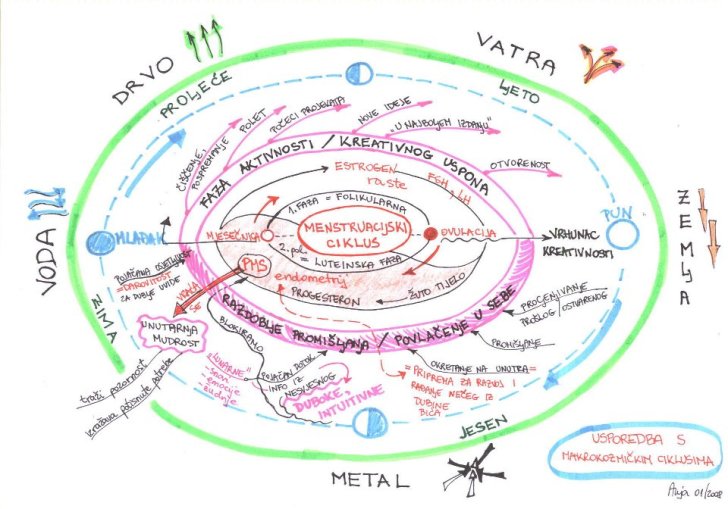 DRVO
VATRA
PROLJEĆE
LJETO
ČIŠĆENJE,
POSPREMANJE
POLET
POČECI PROJEKATA
NOVE IDEJE
"U NAJBOLJEM IZDANJU"
OTVORENOST
FAZA AKTIVNOSTI / KREATIVNOG USPONA
ESTROGEN
raste
FSH i LH
1. FAZA = FOLIKULARNA
MENSTRUACIJSKI
CIKLUS
VODA
MLADI
MJESEČNICA
OVULACIJA
VRHUNAC
KREATIVNOSTI
PUN
ZEMLJA
2. pol.
= LUTEINSKA FAZA
PMS
endometrij
PROGESTERON
ŽUTO TIJELO
POJAČANA OSJETLJIVOST
= DAROVITOST
ZA DUBLJE UVIDE
VRAĆA
SE
ZIMA
UNUTARNJA
MUDROST
RAZDOBLJE PROMIŠLJANJA / POVLAČENJE U SEBE
PROCJENJIVANJE
PROŠLOG / OSTVARENOG
PROMIŠLJANJE
OKRETANJE NA UNUTRA =
= PRIPREMA ZA RAZVOJ I
RAĐANJE NEČEG IZ
DUBINE
BIĆA
BLOKIRAMO
"LUNARNE"
- snovi
- emocije
- žudnje
POJAČAN DOTOK
INFO IZ
NESVJESNOG
DUBOKE, INTUITIVNE
traži pozornost
izražava potisnute potrebe
JESEN
METAL
USPOREDBA S
MAKROKOZMIČKIM CIKLUSIMA
Anja 01/2008